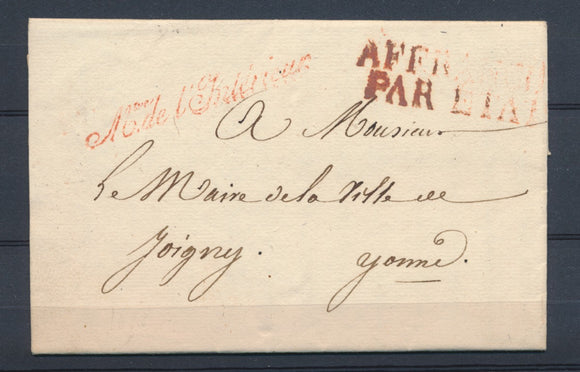 Mtre de l'Intérieur
AFFRANCHI
PAR ETAT
A Monsieur
Le Maire de la Ville de
Joigny. yonne.